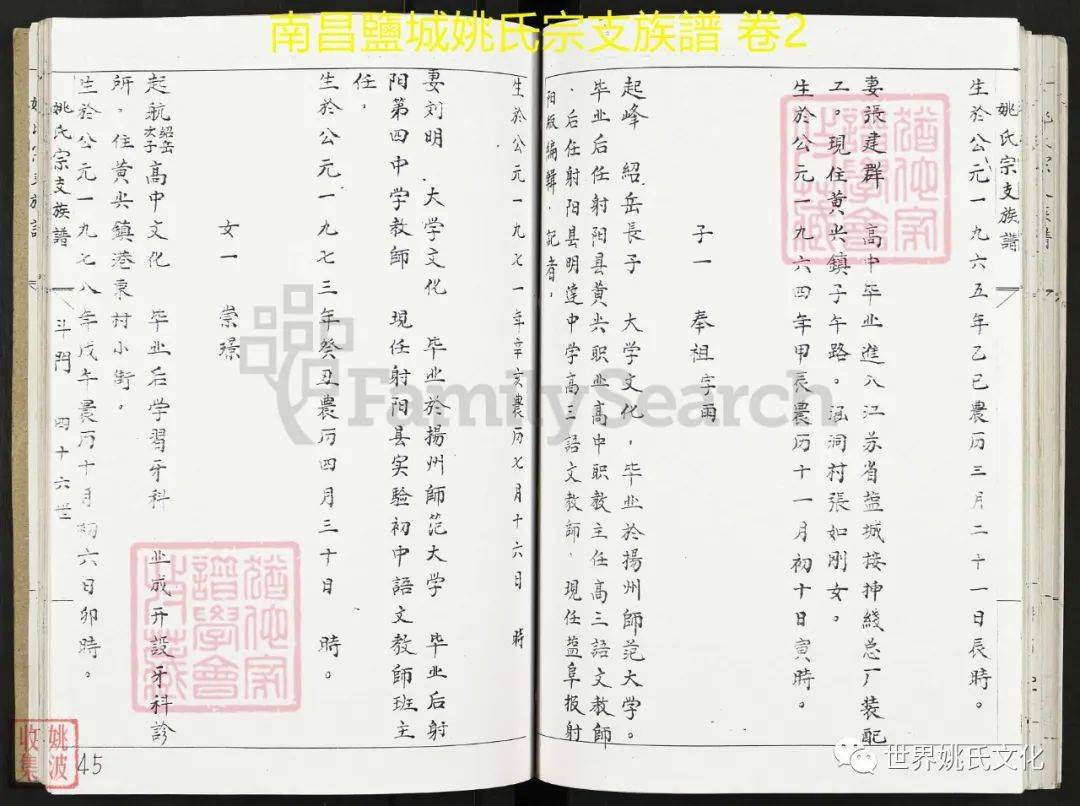 南昌鹽城姚氏宗支族譜 卷2
姚氏宗支族譜
生於公元一九六五年乙巳農历三月二十一日辰時。
妻張建群 高中毕业進入江苏省盐城接抻綫总厂装配
工。現住黄尖鎮子午路。涵洞村張如刚女。
生於公元一九六四年甲辰農历十一月初十日寅時。
子一 奉祖字雨
起峰 紹岳長子 大学文化，毕业於揚州師范大学。
毕业后任射阳县黄尖职业高中职教主任高三語文教師
，后任射阳县明達中学高三語文教師，現任盐阜报射
阳版编辑，記者，
生於公元一九七一年辛亥農历七月十六日 時
妻刘明 大学文化 毕业於揚州師范大学 毕业后射
阳第四中学教師 現任射阳县实验初中語文教師班主
任。
生於公元一九七三年癸丑農历四月三十日 時。
女一 崇璟
起航紹岳次子高中文化 毕业后学習牙科 业成开設牙科診
所。住黄尖鎮港東村小街。
生於公元一九七八年戊午農历十月初六日卯時。
姚氏宗支族譜 斗門 四十六世
45
姚波
收集
FamilySearch
世界姚氏文化